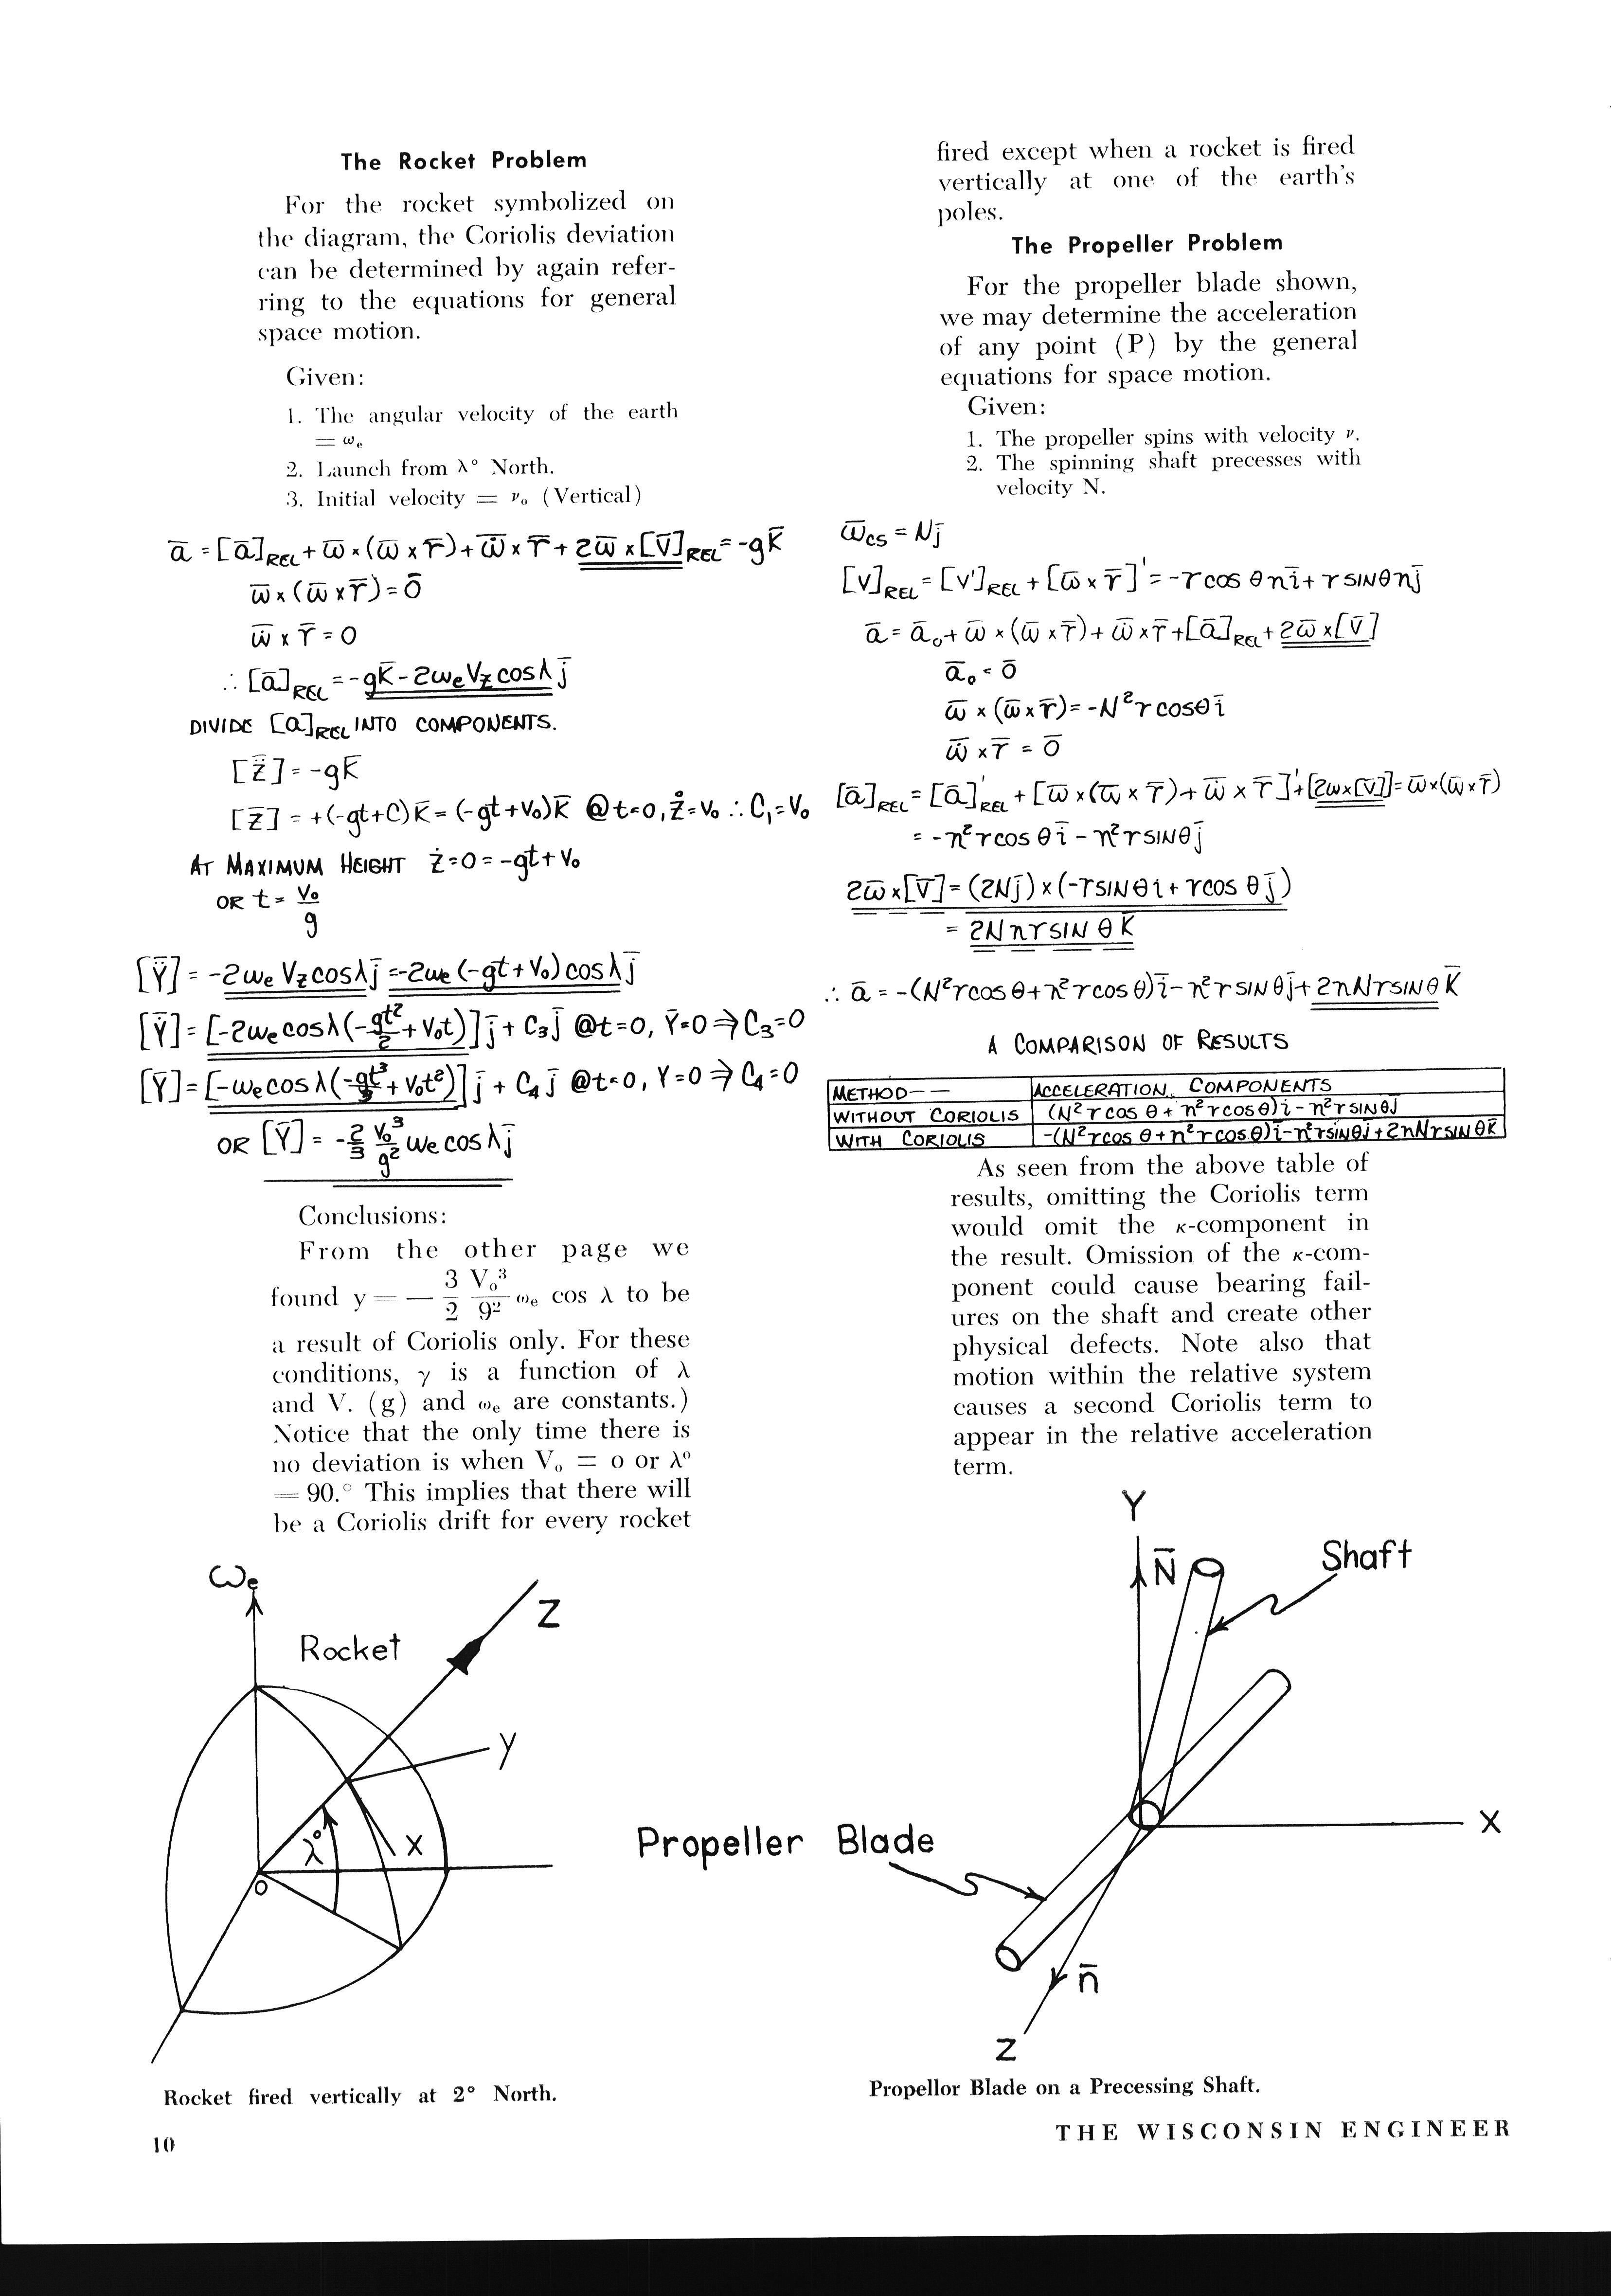 The Rocket Problem
For the rocket symbolized on
the diagram, the Coriolis deviation
can be determined by again refer-
ring to the equations for general
space motion.
Given:
1. The angular velocity of the earth
= ωₑ
2. Launch from λ° North.
3. Initial velocity = νₒ (Vertical)
a̅ = [a̅]REL + ω̅ × (ω̅ × r̅) + ω̅̇ × r̅ + 2ω̅ × [V̅]REL = -gK̅
ω̅ × (ω̅ × r̅) = O̅
ω̅̇ × r̅ = O
∴ [a̅]REL = -gK̅ - 2ωₑVz cos λ j̅
DIVIDE [a̅]REL INTO COMPONENTS.
[Z̈] = -gK̅
[Z̅] = +(-gt+C)K̅ = (-gt+V₀)K̅ @ t=0, Ż=V₀ ∴ C₁=V₀
AT MAXIMUM HEIGHT Ż=0=-gt+V₀
OR t = V₀/g
[Ÿ] = -2ωₑ Vz cos λ j̅ = -2ωₑ (-gt+V₀) cos λ j̅
[Y̅] = [-2ωₑ cos λ (-gt²/2 + V₀t)] j̅ + C₃ j̅ @ t=0, Y̅=0 ⇒ C₃=0
[Y̅] = [-ωₑ cos λ (-gt³/3 + V₀t²)] j̅ + C₄ j̅ @ t=0, Y=0 ⇒ C₄=0
OR [Y̅] = -2/3 V₀³/g² ωₑ cos λ j̅
Conclusions:
From the other page we
found y = — 3/2 Vₒ³/9² ωₑ cos λ to be
a result of Coriolis only. For these
conditions, γ is a function of λ
and V. (g) and ωₑ are constants.)
Notice that the only time there is
no deviation is when Vₒ = o or λ°
= 90.° This implies that there will
be a Coriolis drift for every rocket
ωₑ
Rocket
Z
Y
X
λ°
O
Rocket fired vertically at 2° North.
10
fired except when a rocket is fired
vertically at one of the earth's
poles.
The Propeller Problem
For the propeller blade shown,
we may determine the acceleration
of any point (P) by the general
equations for space motion.
Given:
1. The propeller spins with velocity ν.
2. The spinning shaft precesses with
velocity N.
ω̅CS = Nj̅
[V]REL = [V']REL + [ω̅ × r̅]' = -r cos θ n i̅ + r SIN θ n j̅
a̅ = a̅₀ + ω̅ × (ω̅ × r̅) + ω̅̇ × r̅ + [a̅]REL + 2ω̅ × [V̅]
a̅₀ = O̅
ω̅ × (ω̅ × r̅) = -N² r cos θ i̅
ω̅̇ × r̅ = O̅
[a̅]REL = [a̅]'REL + [ω̅ × (ω̅ × r̅) + ω̅̇ × r̅]' + [2ω × [V̅]] = ω̅ × (ω̅ × r̅)
= -n² r cos θ i̅ - n² r SIN θ j̅
2ω̅ × [V̅] = (2Nj̅) × (-r SIN θ i + r cos θ j̅)
= 2N n r SIN θ K̅
∴ a̅ = -(N² r cos θ + n² r cos θ) i̅ - n² r SIN θ j̅ + 2nNr SIN θ K̅
A COMPARISON OF RESULTS
METHOD-- ACCELERATION COMPONENTS
WITHOUT CORIOLIS (N² r cos θ + n² r cos θ) i̅ - n² r SIN θ j̅
WITH CORIOLIS -(N² r cos θ + n² r cos θ) i̅ - n² r SIN θ j̅ + 2nNr SIN θ K̅
As seen from the above table of
results, omitting the Coriolis term
would omit the κ-component in
the result. Omission of the κ-com-
ponent could cause bearing fail-
ures on the shaft and create other
physical defects. Note also that
motion within the relative system
causes a second Coriolis term to
appear in the relative acceleration
term.
Y
N̅
Shaft
X
Propeller Blade
n̅
Z
Propellor Blade on a Precessing Shaft.
THE WISCONSIN ENGINEER